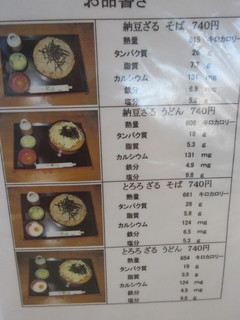 お品書き
納豆ざる そば 740円
熱量 615 キロカロリー
タンパク質 26 g
脂質 7.7 g
カルシウム 131 mg
鉄分
塩分
納豆ざる うどん 740円
熱量 キロカロリー
タンパク質 19 g
脂質 5.3 g
カルシウム 131 mg
鉄分 4.9 mg
塩分 g
とろろ ざる そば 740円
熱量 キロカロリー
タンパク質 g
脂質 g
カルシウム 124 mg
鉄分 6.5 mg
塩分 g
とろろ ざる うどん 740円
熱量 キロカロリー
タンパク質 19 g
脂質 g
カルシウム 124 mg
鉄分 4.5 mg
塩分 g